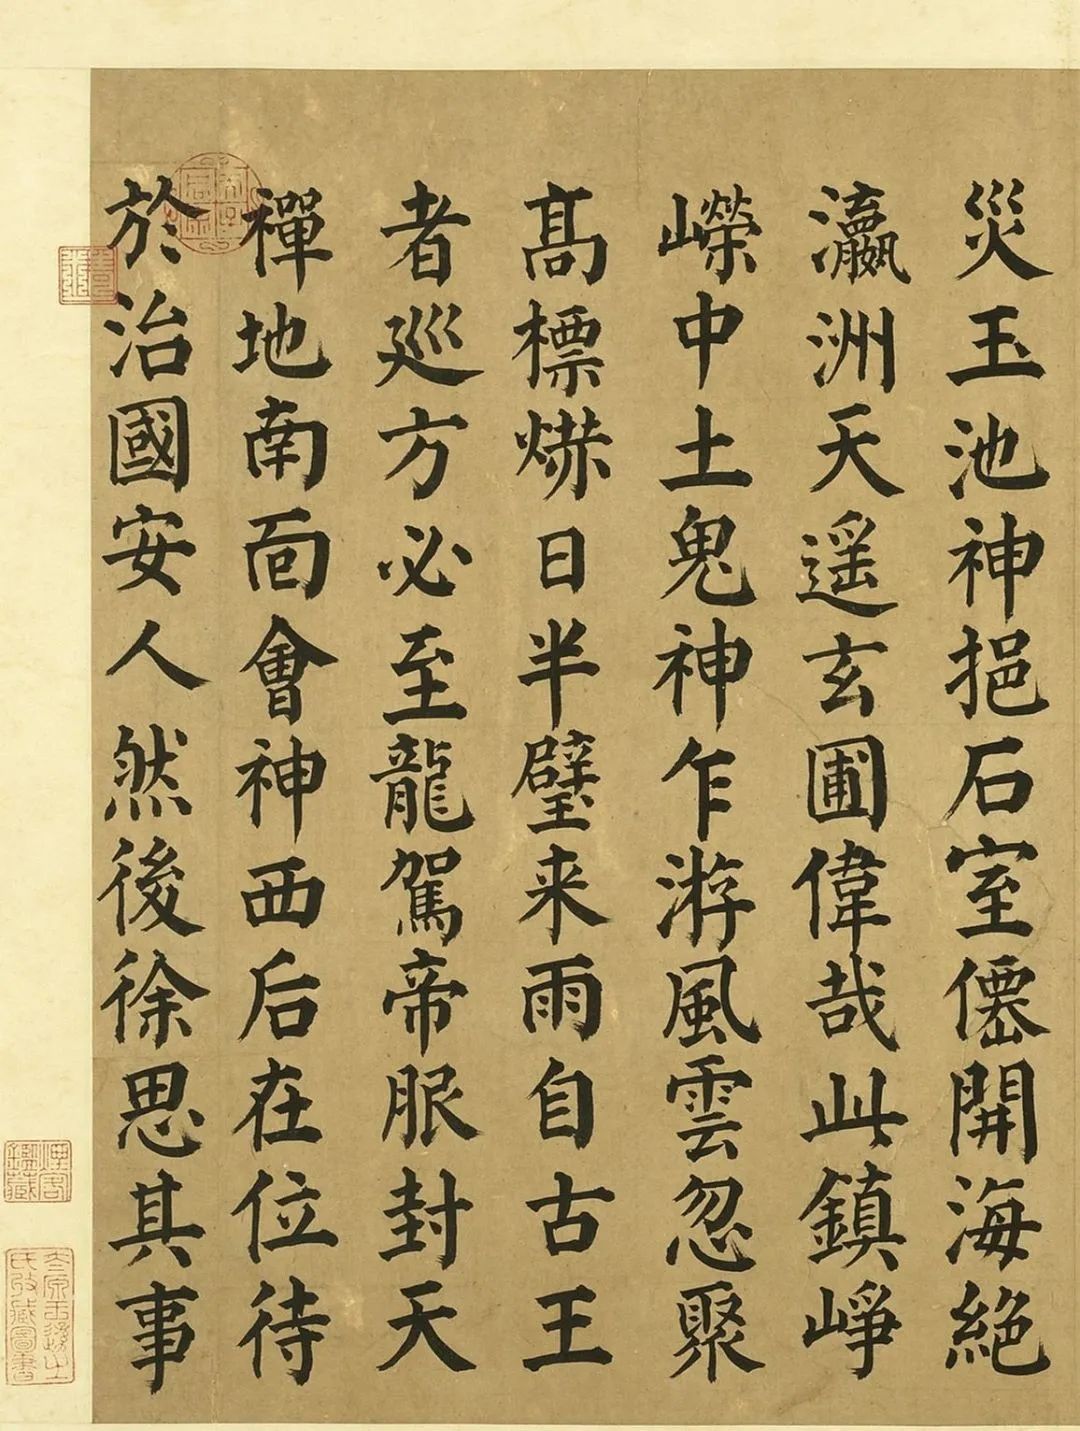 災玉池神挹石室僊開海絶
瀛洲天遥玄圃偉哉此鎮崢
嶸中土鬼神乍游風雲忽聚
髙標爀日半璧来雨自古王
者巡方必至龍駕帝服封天
禪地南面會神西后在位待
於治國安人然後徐思其事
太原王遜之
氏收藏圖書